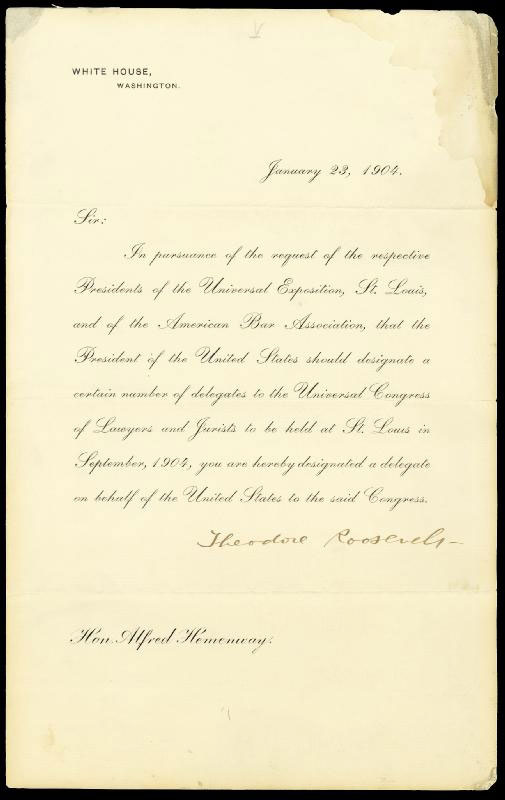 WHITE HOUSE,
WASHINGTON.
January 23, 1904.
Sir:
In pursuance of the request of the respective
Presidents of the Universal Exposition, St. Louis,
and of the American Bar Association, that the
President of the United States should designate a
certain number of delegates to the Universal Congress
of Lawyers and Jurists to be held at St. Louis in
September, 1904, you are hereby designated a delegate
on behalf of the United States to the said Congress.
Theodore Roosevelt
Hon. Alfred Hemenway.